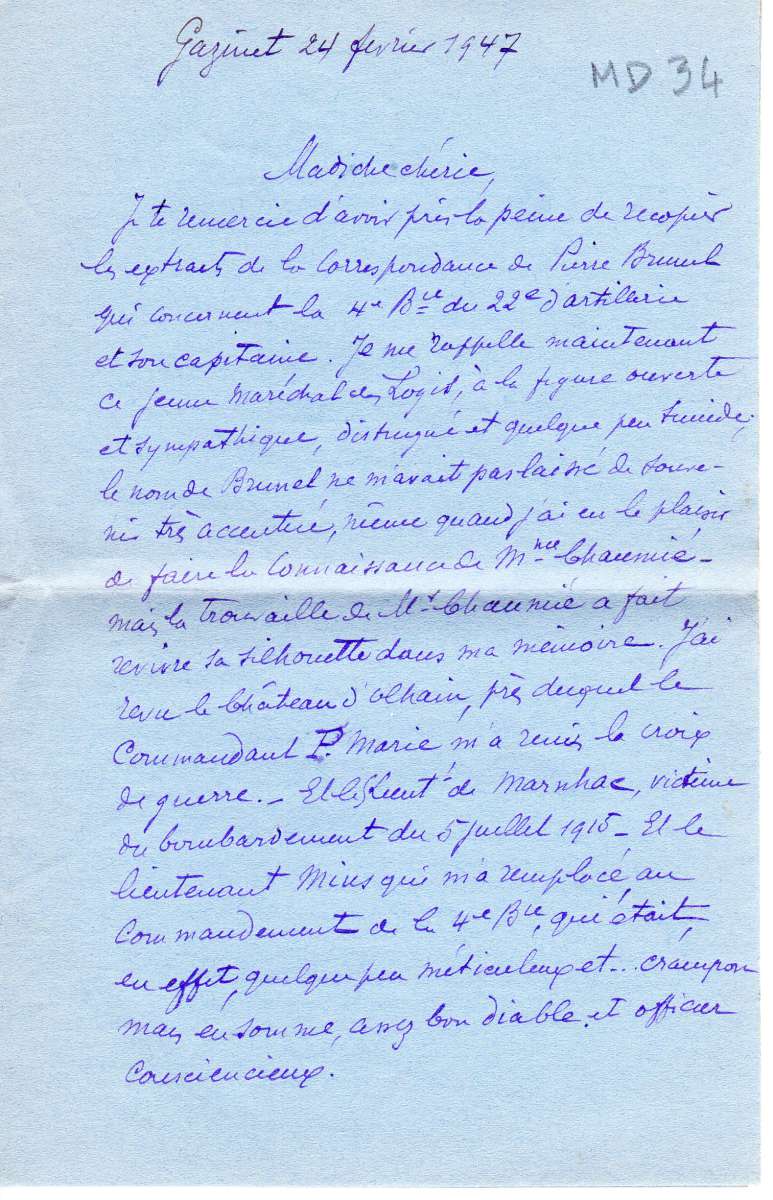 Gazinet 24 février 1947
MD 34
Madiche chérie,
Je te remercie d'avoir pris la peine de recopier
les extraits de la Correspondance de Pierre Brunel
qui concernent la 4e Bie du 22e d'artillerie
et son capitaine. Je me rappelle maintenant
ce jeune Maréchal des Logis, à la figure ouverte
et sympathique, distingué et quelque peu timide;
le nom de Brunel ne m'avait pas laissé de souve-
nir très accentué, même quand j'ai eu le plaisir
de faire la Connaissance de Mme Chaumié -
mais la trouvaille de Mr Chaumié a fait
revivre sa silhouette dans ma mémoire. J'ai
revu le Château d'Olhain, près duquel le
Commandant P. Marie m'a remis la croix
de guerre. _ Et le Lieutt de Marnhac, victime
du bombardement du 5 juillet 1915 _ Et le
lieutenant Mius qui m'a remplacé au
Commandement de la 4e Bie, qui était,
en effet, quelque peu méticuleux et... crampon
mais en somme, assez bon diable et officier
Consciencieux.